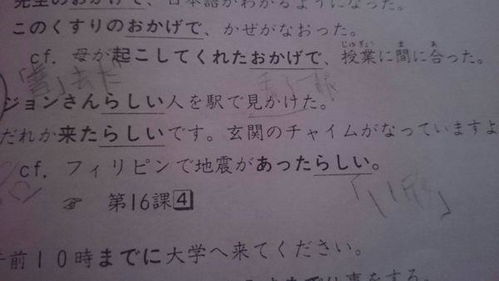 先生のおかげで、日本語がわかるようになった。
このくすりのおかげで、かぜがなおった。
cf. 母が起こしてくれたおかげで、授業に間に合った。
じゅぎょう ま あ
ジョンさんらしい人を駅で見かけた。
だれか来たらしいです。玄関のチャイムがなっていますよ
cf. フィリピンで地震があったらしい。
☞ 第16課4
午前10時までに大学へ来てください。